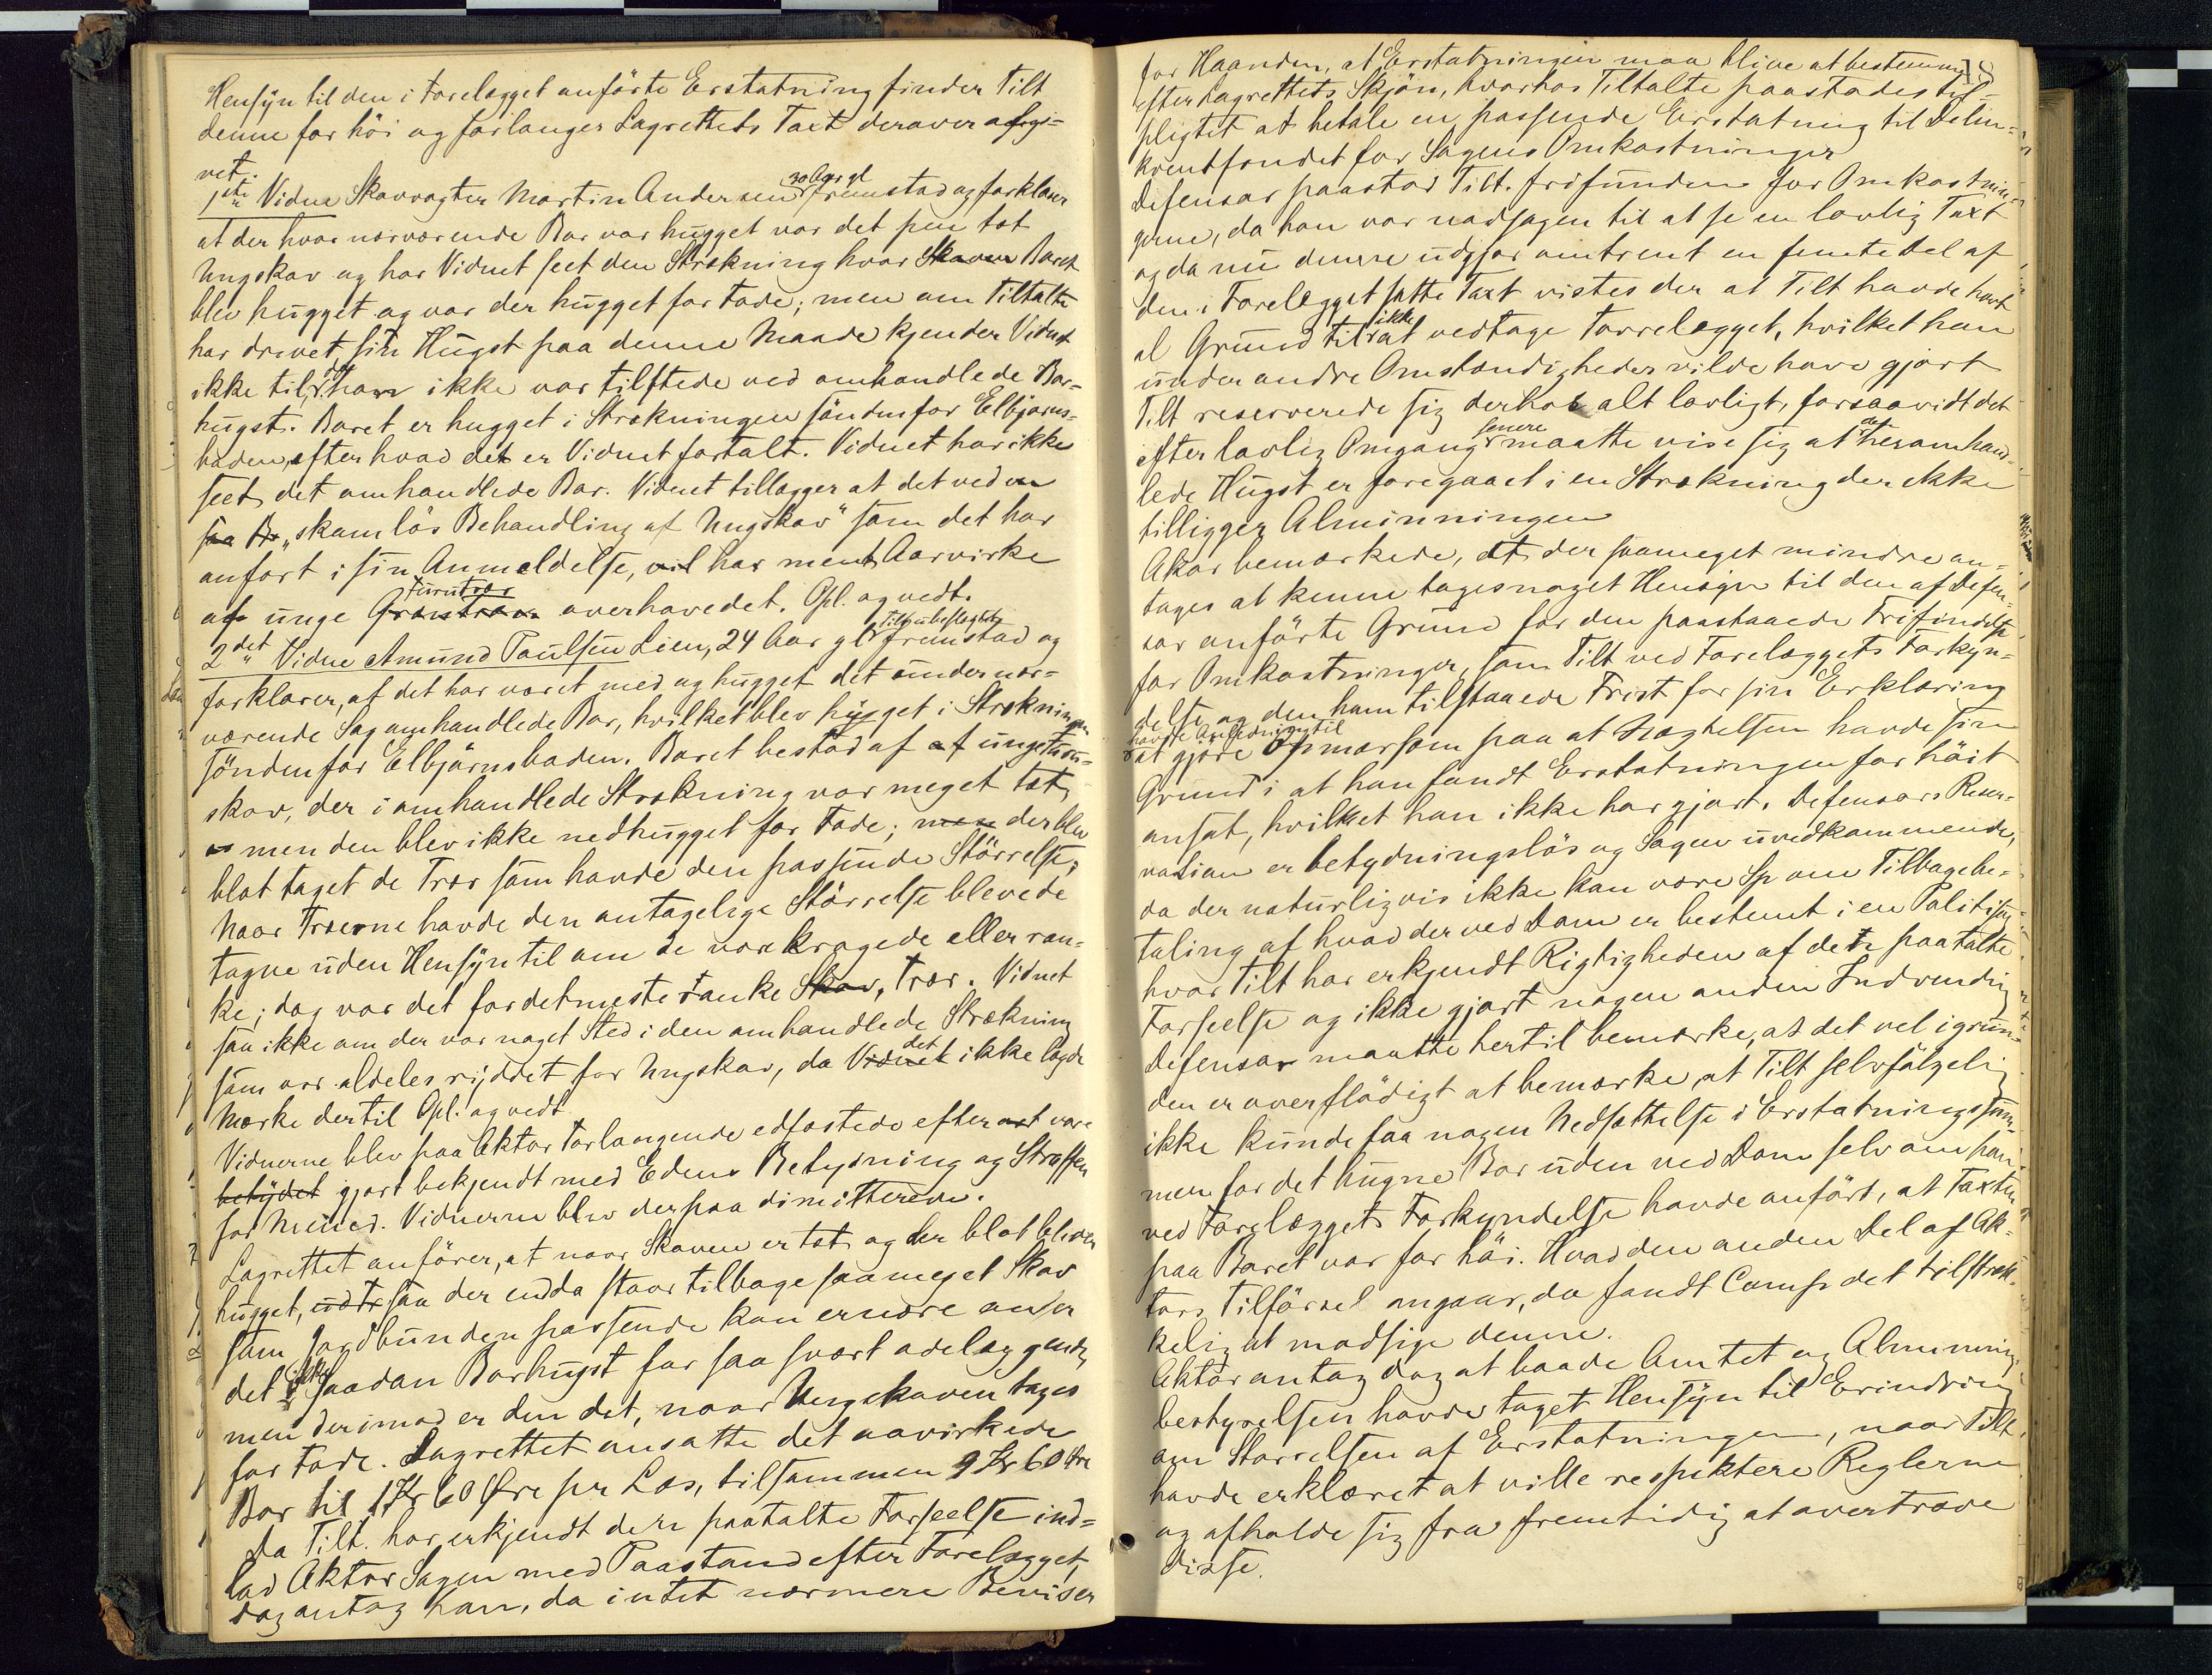 Hensyn til den i Forelægget anförte Erstatning finder Tilt
denne for höi og forlanger Lagrettets Taxt derover afgi=
vet.
1ste Vidne Skovvogter Martin Andersen 30 Aar gl fremstod og forklarer
at der hvor nærværende Bar var hugget var det pen tæt
Ungskov og har Vidnet seet den Strækning hvor Skoven Baret
blev hugget og var der hugget for Fode; men om Tiltalte
har drevet sin Hugst paa denne Maade kjender Vidnet
ikke til, da han ikke var tilstede ved omhandlede Bar=
hugst. Baret er hugget i Strækningen söndenfor Elbjørns=
boden, efter hvad det er Vidnet fortalt. Vidnet har ikke
seet det omhandlede Bar. Vidnet tillægger at det ved en
saa Be „skamlös Behandling af Ungskov" som det har
anfört i sin Anmeldelse, vil har ment Aavirke
af unge Grantræer Furutrær overhovedet. Opl. og vedt.
2det Vidne Amund Paulsen Lien, 24 Aar gl Tilt ubeslægtet fremstod og
forklarer, at det har været med og hugget det under nær=
værende Sag omhandlede Bar, hvilket blev hugget i Strækningen
söndenfor Elbjörnsboden. Baret bestod af af ungt
skov, der i omhandlede Strækning var meget tæt,
men den blev ikke nedhugget for Fode; men der blev
blot taget de Trær som havde den passende Störrelse;
Naar Træerne havde den antagelige Störrelse bleve de
tagne uden Hensyn til om de vare kragede eller ran=
ke; dog var det fordetmeste ranke Skov, Trær. Vidnet
saa ikke om der var noget Sted i den omhandlede Strækning
som var aldeles ryddet for Ungskov, da Vidnet det ikke lagde
Mærke dertil Opl. og vedt
Vidnerne blev paa Aktors Forlangende edfæstede efter at være
betydet gjort bekjendt med Edens Betydning og Straffen
for Mened. Vidnerne blev derpaa dimitterede.
Lagrettet anförer, at naar Skoven er tæt og der blot bliver
hugget, saa der endda staar tilbage saameget Skov
som Jordbunden passende kan ernære anser
det ikke saadan Barhugst for saa svært ödelæggende,
men derimod er den det, naar Ungskoven tages
for Fode. Lagrettet ansatte det aavirkede
Bar til 1 Kr 60 Öre pr Læs, tilsammen 9 Kr 60 Öre
Da Tilt. har erkjendt den paatalte Forseelse ind=
lod Aktor Sagen med Paastand efter Forelægget,
dog antog han, da intet nærmere Beviser
for Haanden, at Erstatningen maa blive at bestemme
efter Lagrettets Skjön, hvorhos Tiltalte paastodes til=
pligtet at betale en passende Erstatning til Delin=
kventfondet for Sagens Omkostninger
Defensor paastod Tilt. frifunden for Omkostnin=
gerne, da han var nödsagen til at se en lovlig Taxt
og da nu denne udgjør omtrent en femtedel af
den i Forelægget satte Taxt vistes der at Tilt havde havt
al Grund til ikke at vedtage Forrelægget, hvilket han
under andre Omstændigheder vilde have gjort
Tilt reserverede sig derhos alt lovligt, forsaavidt det
efter lovlig Omgang senere maatte vise sig at den heromhand=
lede Hugst er foregaaet i en Strækning der ikke
tilligger Alminningen
Aktor bemærkede, at der saameget mindre an=
tages at kunne tages noget Hensyn til den af Defen=
sor anförte Grund for den paastaaede Frifindelse
for Omkostninger, som Tilt ved Forelæggets Forkyn=
delse og den ham tilstaaede Frist for sin Erklæring
havde Anledning til at gjöre opmærksom paa at Nægtelsen havde sin
Grund i at han fandt Erstatningen for höit
ansat, hvilket han ikke har gjort. Defensors Reser=
vation er betydningslös og Sagen uvedkommende,
da der naturligvis ikke kan være Sp om Tilbagebe=
taling af hvad der ved Dom er bestemt i en Politisag
hvor Tilt har erkjendt Rigtigheden af den paatalte
Forseelse og ikke gjort nogen anden Indvending
Defensor maatte hertil bemærke, at det vel igrun=
den er overflödigt at bemærke, at Tilt selvfölgelig
ikke kunde faa nogen Nedsættelse i Erstatningssum=
men for det hugne Bar uden ved Dom selv om han
ved Forelægget Forkyndelse havde anfört, at Taxten
paa Baret var for höi. Hvad den anden Del af Ak=
tors Tilförsel angaar, da fandt Comp det tilstræk=
kelig at modsige denne.
Aktor antog dog at baade Amtet og Alminning
bestyrelsen havde taget Hensyn til Erindring
om Storrelsen af Erstatningen, naar Tilt.
havde erklæret at ville respektere Reglerne
og afholde sig fra fremtidig at overtræde
disse.